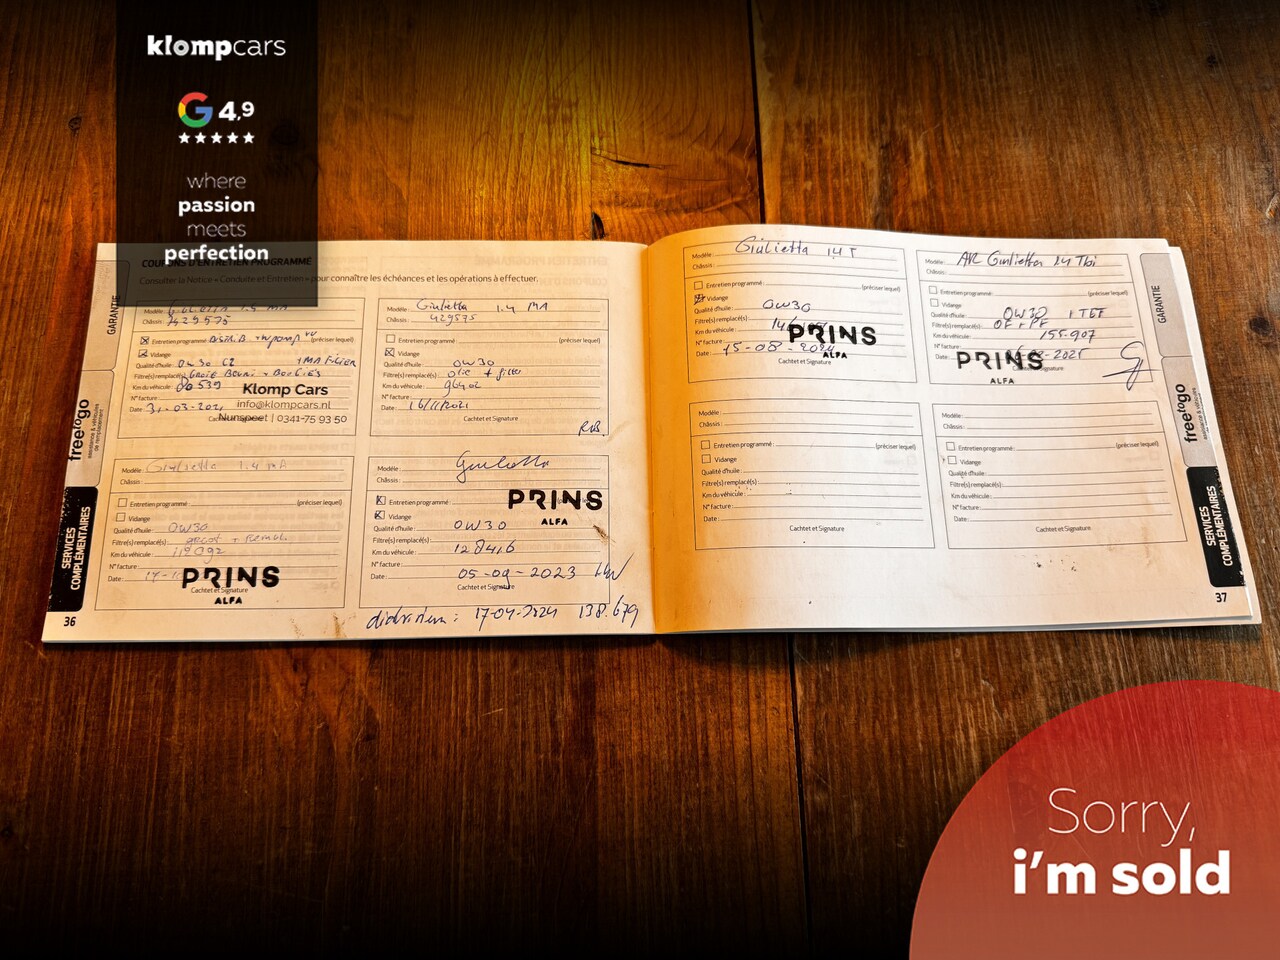 klompcars
G 4,9
where
passion
meets
perfection
COUPONS D'ENTRETIEN PROGRAMMÉ
Consulter la Notice « Conduite et Entretien » pour connaître les échéances et les opérations à effectuer.
GARANTIE
freetogo
SERVICES
COMPLÉMENTAIRES
Modèle :
Châssis : 7429575
Entretien programmé : (préciser lequel)
Vidange
Qualité d'huile : 0W30
Filtre(s) remplacé(s) :
Km du véhicule :
Klomp Cars
N° facture :
info@klompcars.nl
Date : 31-03-2021
Nunspeet | 0341-75 93 50
Modèle : Giulietta 1.4 MA
Châssis : 429575
Entretien programmé : (préciser lequel)
Vidange
Qualité d'huile : 0W30
Filtre(s) remplacé(s) : olie + filter
Km du véhicule :
N° facture :
Date : 16/11/2021
Cachet et Signature
Modèle : Giulietta 1.4 MA
Châssis :
Entretien programmé : (préciser lequel)
Vidange
Qualité d'huile : 0W30
Filtre(s) remplacé(s) :
Km du véhicule :
N° facture :
Date :
PRINS
ALFA
Cachet et Signature
Modèle : Giulietta
Châssis :
Entretien programmé :
PRINS
ALFA
Vidange
Qualité d'huile : 0W30
Filtre(s) remplacé(s) :
Km du véhicule : 128416
N° facture :
Date : 05-09-2023
Cachet et Signature
17-04-2024 138.679
36
Modèle : Giulietta 1.4 T
Châssis :
Entretien programmé : (préciser lequel)
Vidange
Qualité d'huile : 0W30
Filtre(s) remplacé(s) :
Km du véhicule :
PRINS
ALFA
N° facture :
Date : 15-08-2024
Cachet et Signature
Modèle : AR Giulietta 1.4 Tbi
Châssis :
Entretien programmé : (préciser lequel)
Vidange
Qualité d'huile : 0W30
Filtre(s) remplacé(s) : OF + PF
Km du véhicule : 155.907
N° facture :
PRINS
ALFA
Date :
Modèle :
Châssis :
Entretien programmé : (préciser lequel)
Vidange
Qualité d'huile :
Filtre(s) remplacé(s) :
Km du véhicule :
N° facture :
Date :
Cachet et Signature
Modèle :
Châssis :
Entretien programmé : (préciser lequel)
Vidange
Qualité d'huile :
Filtre(s) remplacé(s) :
Km du véhicule :
N° facture :
Date :
Cachet et Signature
GARANTIE
freetogo
SERVICES
COMPLÉMENTAIRES
37
Sorry,
i'm sold